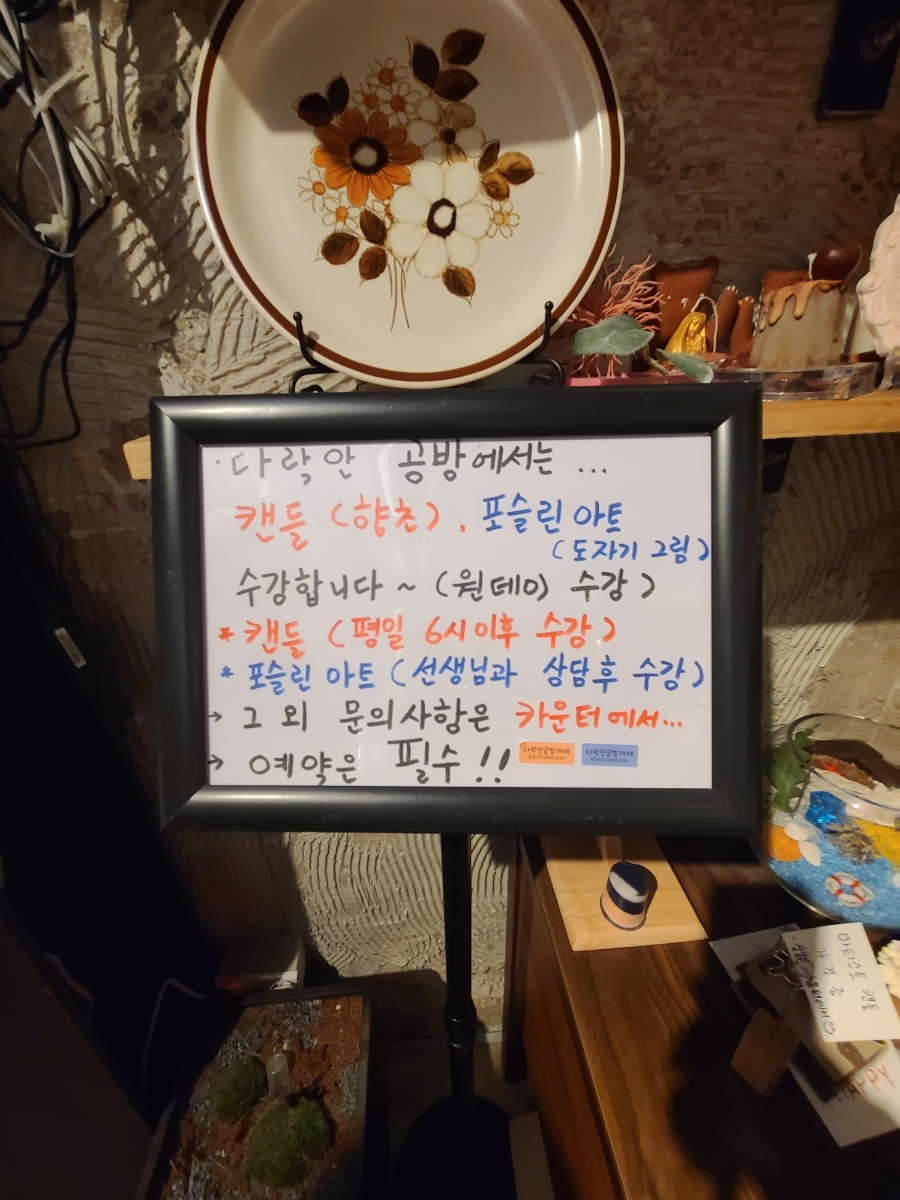 · 다락안 공방에서는 ...
캔들 (향초) . 포슬린 아트
(도자기 그림)
수강합니다 ~ (원데이 수강)
* 캔들 (평일 6시 이후 수강)
* 포슬린 아트 (선생님과 상담후 수강)
→ 그 외 문의사항은 카운터에서...
→ 예약은 필수 !!
다락안공방까페 다락안공방까페
HAPPY